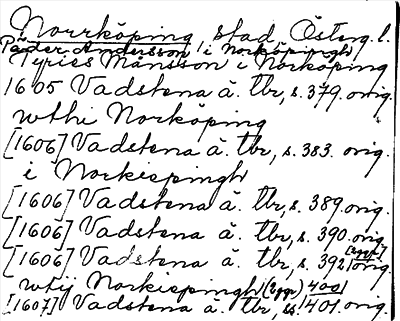 Norrköping stad, Österg. l.
Päder Andersson i Norköpingh
Tyries Månsson i Norköping
1605 Vadstena ä. tbr, s. 379. orig.
wthi Norköping
[1606] Vadstena ä. tbr, s. 383. orig.
i Norkiepingh
[1606] Vadstena ä. tbr, s. 389. orig.
[1606] Vadstena ä. tbr, s. 390. orig.
[1606] Vadstena ä. tbr, s. 392, orig.
wtij Norkiepingh (2ggr) 400,
[1607] Vadstena ä. tbr, ss. 401. orig.